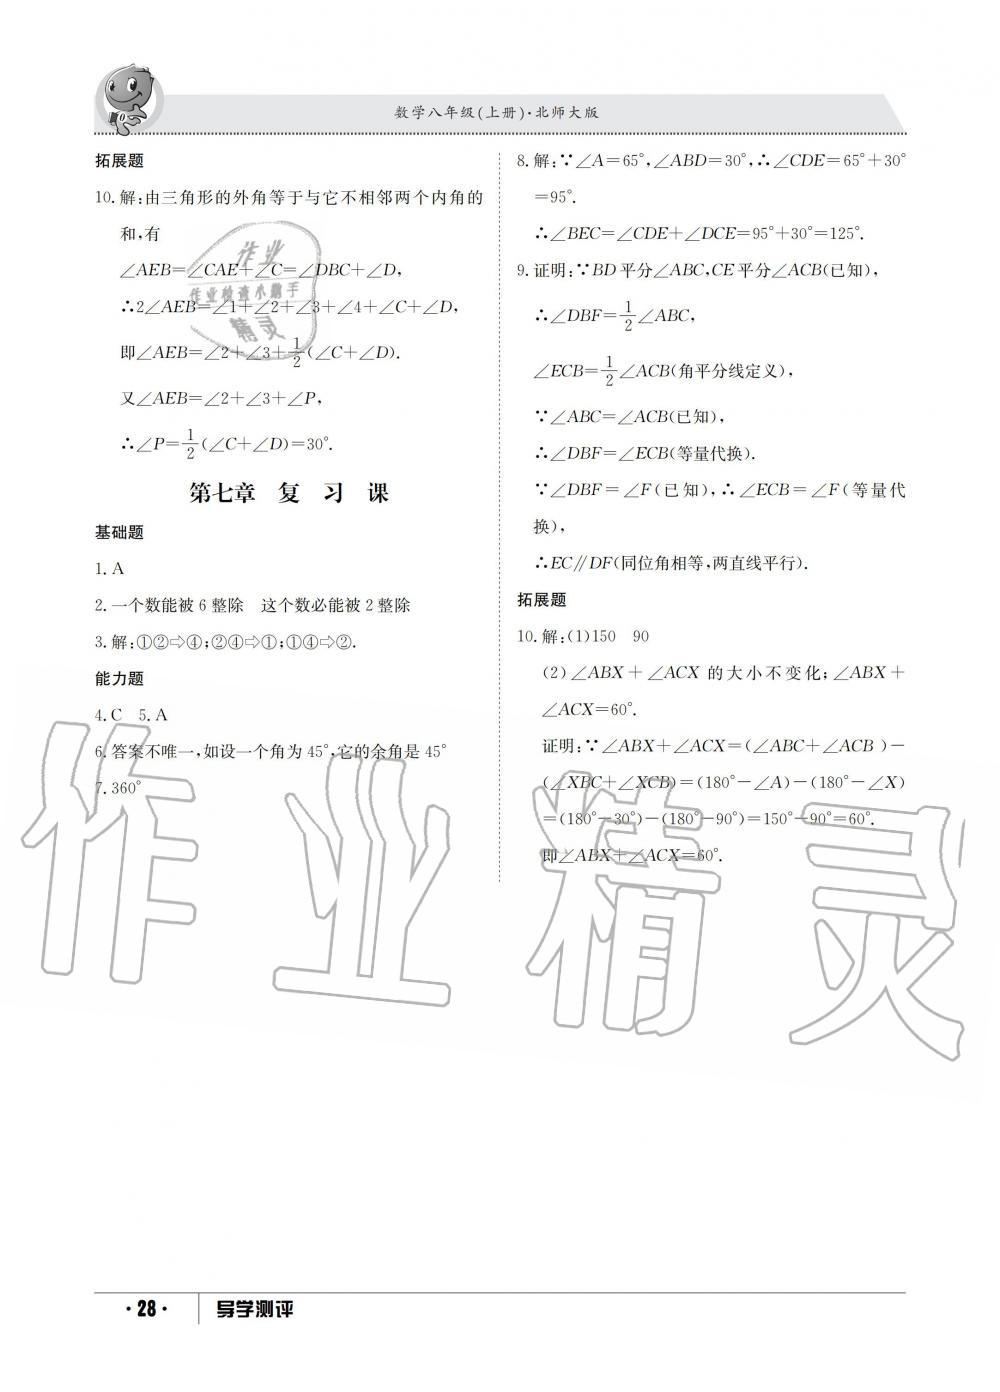 数学八年级(上册)·北师大版
拓展题
10. 解:由三角形的外角等于与它不相邻两个内角的
和,有
∠AEB=∠CAE+∠C=∠DBC+∠D,
∴2∠AEB=∠1+∠2+∠3+∠4+∠C+∠D,
即∠AEB=∠2+∠3+1/2(∠C+∠D).
又∠AEB=∠2+∠3+∠P,
∴∠P=1/2(∠C+∠D)=30°.
第七章 复 习 课
基础题
1. A
2. 一个数能被 6 整除 这个数必能被 2 整除
3. 解:①②⇨④;②④⇨①;①④⇨②.
能力题
4. C 5. A
6. 答案不唯一,如设一个角为 45°,它的余角是 45°
7. 360°
8. 解:∵∠A=65°,∠ABD=30°,∴∠CDE=65°+30°
=95°.
∴∠BEC=∠CDE+∠DCE=95°+30°=125°.
9. 证明:∵BD 平分∠ABC,CE 平分∠ACB(已知),
∴∠DBF=1/2∠ABC,
∠ECB=1/2∠ACB(角平分线定义),
∵∠ABC=∠ACB(已知),
∴∠DBF=∠ECB(等量代换).
∵∠DBF=∠F(已知),∴∠ECB=∠F(等量代
换),
∴EC∥DF(同位角相等,两直线平行).
拓展题
10. 解:(1)150 90
(2)∠ABX+∠ACX 的大小不变化;∠ABX+
∠ACX=60°.
证明:∵∠ABX+∠ACX=(∠ABC+∠ACB )-
(∠XBC+∠XCB)=(180°-∠A)-(180°-∠X)
=(180°-30°)-(180°-90°)=150°-90°=60°.
即∠ABX+∠ACX=60°.
作业
作业检查小助手
精灵
作业精灵
·28·
导学测评